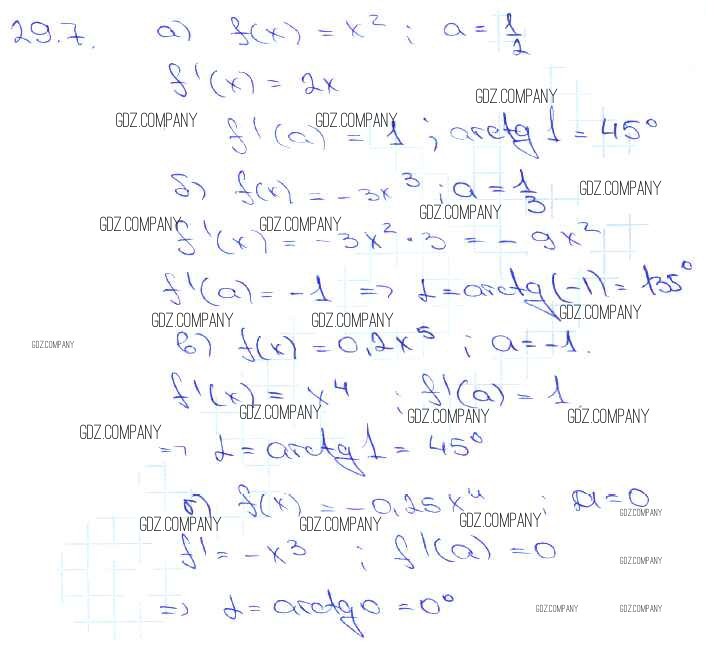 29.7. а) f(x) = x² ; a = 1/2
f'(x) = 2x
GDZ.COMPANY
GDZ.COMPANY GDZ.COMPANY
f'(a) = 1 ; arctg 1 = 45°
б) f(x) = -3x³ ; a = 1/3
GDZ.COMPANY
GDZ.COMPANY
GDZ.COMPANY GDZ.COMPANY
f'(x) = -3x² · 3 = -9x²
f'(a) = -1 => α = arctg(-1) = 135°
GDZ.COMPANY
GDZ.COMPANY GDZ.COMPANY
GDZ.COMPANY
в) f(x) = 0,2x⁵ ; a = -1.
f'(x) = x⁴ ; f'(a) = 1
GDZ.COMPANY GDZ.COMPANY GDZ.COMPANY
GDZ.COMPANY
=> α = arctg 1 = 45°
г) f(x) = -0,25x⁴ ; a = 0
GDZ.COMPANY
GDZ.COMPANY GDZ.COMPANY GDZ.COMPANY
f' = -x³ ; f'(a) = 0
GDZ.COMPANY
=> α = arctg 0 = 0°
GDZ.COMPANY GDZ.COMPANY